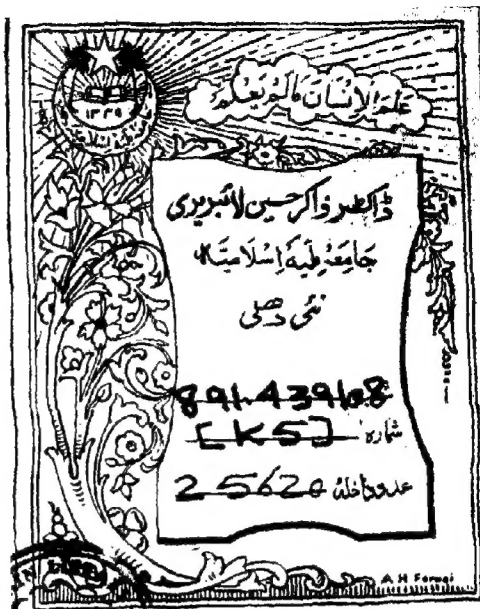 ۱۳۳۹
عَلَّمَ الْاِنْسَانَ مَالَمْ يَعْلَمْ
ڈاکٹر ذاکر حسین لائبریری
جَامِعَہ مِلّیَہ اِسْلَامِیَہ
نئی دہلی
891.439108
شمارہ [K5]
عدد داخلہ 25620
A H Faruqi